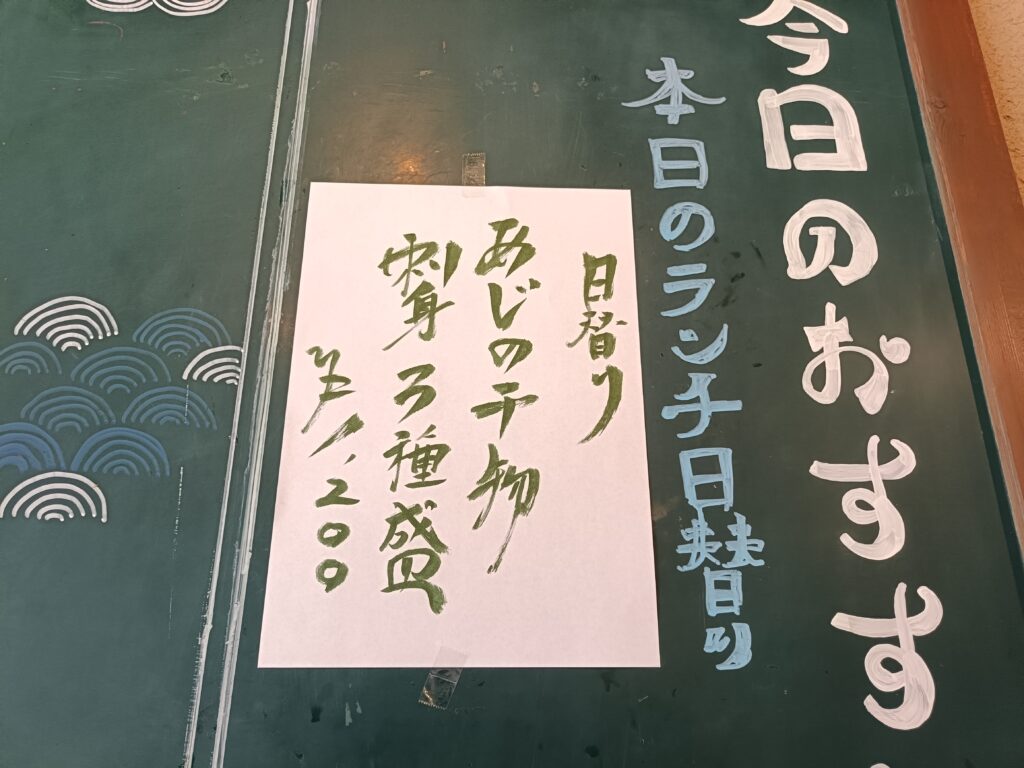 今日のおすす
本日のランチ日替り
日替り
あじの干物
刺身3種盛
¥1,200